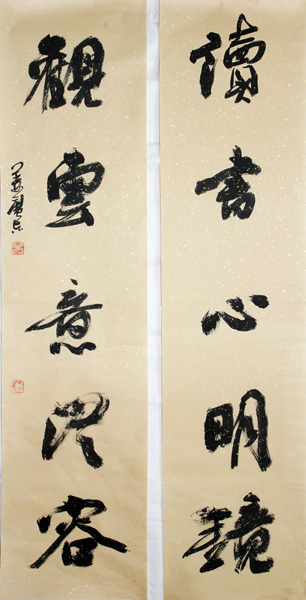 讀書心明鏡
觀雲意從容